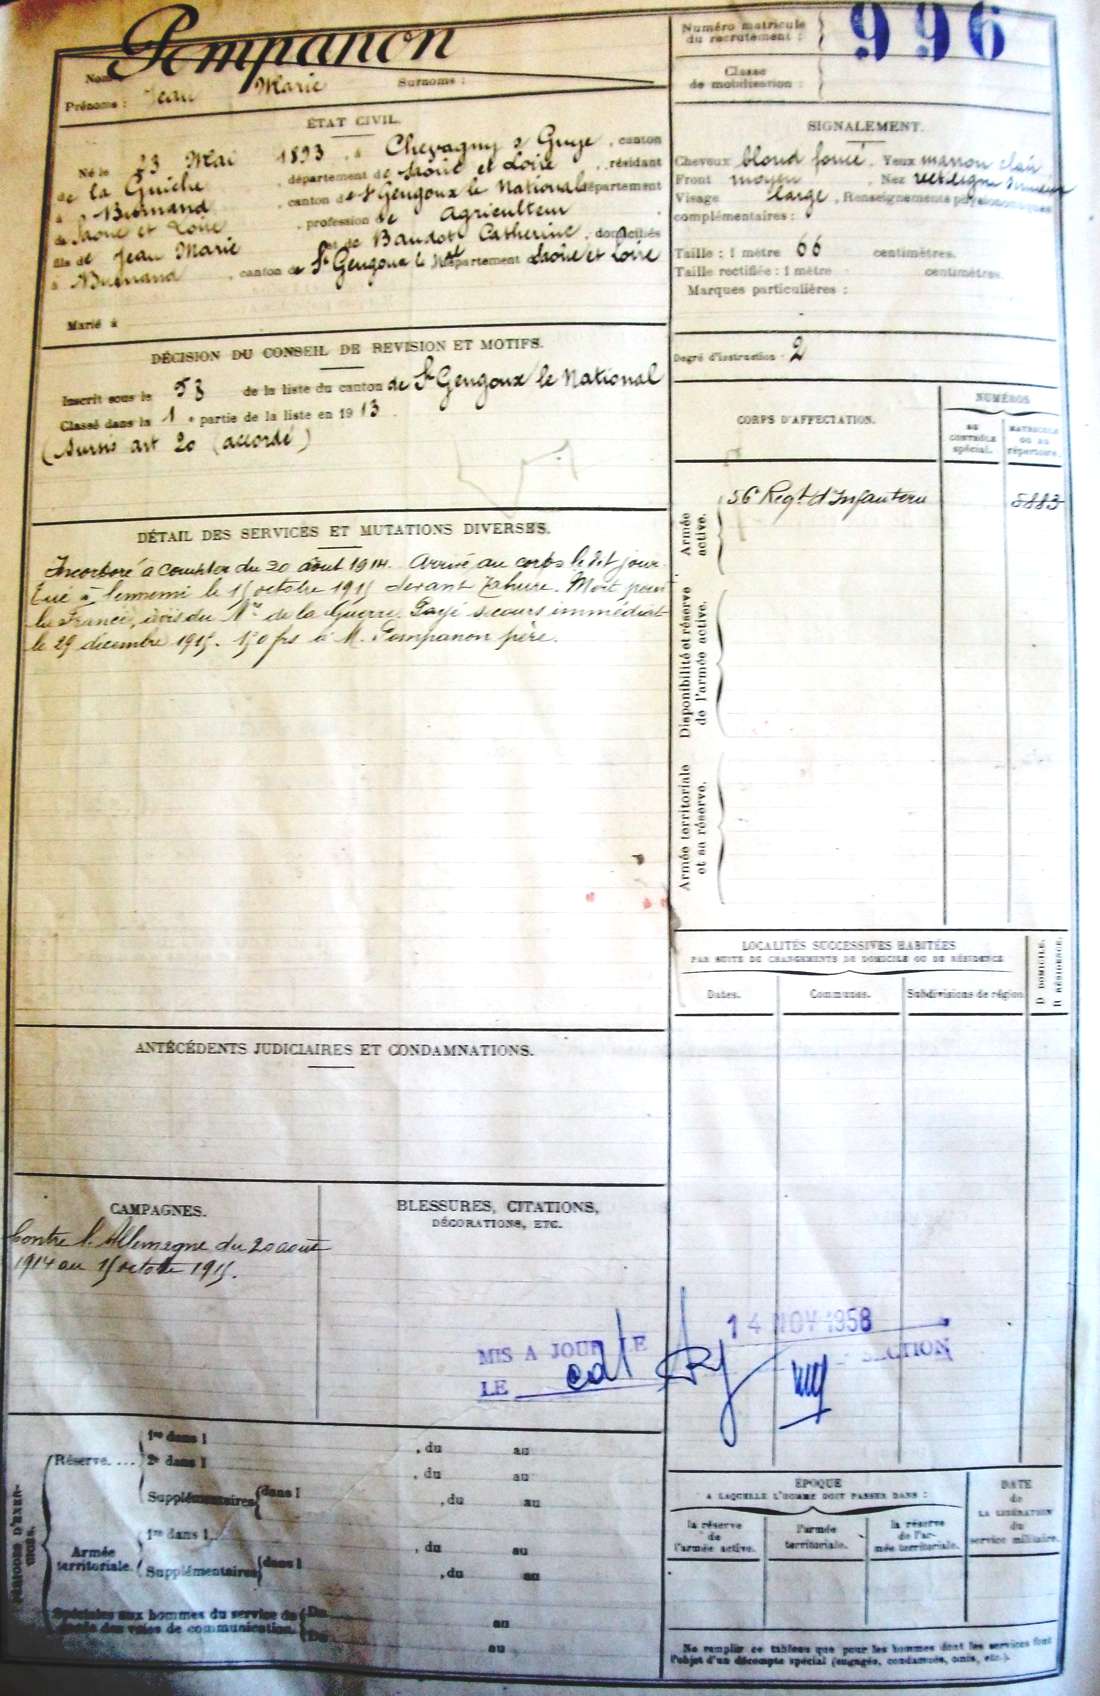 Pompanon
Nom
Prénoms : Jean Marie Surnoms :
Numéro matricule
du recrutement :
996
Classe
de mobilisation :
ÉTAT CIVIL.
Né le 23 Mai 1893, à Chevagny s Guye, canton
de la Guiche, département de Saône et Loire, résidant
à Burnand, canton de St Gengoux le National département
de Saône et Loire, profession de Agriculteur
fils de Jean Marie et de Baudot Catherine, domiciliés
à Burnand, canton de St Gengoux le Nal département Saône et Loire
Marié à
SIGNALEMENT.
Cheveux blond foncé. Yeux marron clair
Front moyen, Nez rectiligne
Visage large, Renseignements physionomiques
complémentaires :
Taille : 1 mètre 66 centimètres.
Taille rectifiée : 1 mètre centimètres.
Marques particulières :
Degré d'instruction 2
DÉCISION DU CONSEIL DE REVISION ET MOTIFS.
Inscrit sous le de la liste du canton de St Gengoux le National
Classé dans la 1e partie de la liste en 1913.
(Sursis art 20 (accordé)
CORPS D'AFFECTATION.
NUMÉROS
AU
CONTRÔLE
spécial.
MATRICULE
OU AU
répertoire.
Armée
active.
56e Regt d'Infanterie
5883
DÉTAIL DES SERVICES ET MUTATIONS DIVERSES.
Incorporé à compter du 20 août 1914. Arrivé au corps le dit jour.
Tué à l'ennemi le 15 octobre 1915 devant Tahure. Mort pour
la France, avis du Mre de la Guerre. Payé secours immédiat
le 29 décembre 1915. 150 frs à M. Pompanon père.
Disponibilité et réserve
de l'armée active.
Armée territoriale
et sa réserve.
LOCALITÉS SUCCESSIVES HABITÉES
PAR SUITE DE CHANGEMENTS DE DOMICILE OU DE RÉSIDENCE
Dates.
Communes.
Subdivisions de région
D DOMICILE.
R RÉSIDENCE.
ANTÉCÉDENTS JUDICIAIRES ET CONDAMNATIONS.
CAMPAGNES.
Contre l'Allemagne du 20 août
1914 au 15 octobre 1915.
BLESSURES, CITATIONS,
DÉCORATIONS, ETC.
14 NOV 1958
MIS A JOUR LE
SECTION
LE
PÉRIODES D'EXER-
CICES.
Réserve....
1re dans l , du au
2e dans l , du au
Supplémentaires dans l , du au
Armée
territoriale.
1re dans l , du au
Supplémentaires dans l , du au
Spéciales aux hommes du service de
garde des voies de communication.
Du au
Du au
ÉPOQUE
A LAQUELLE L'HOMME DOIT PASSER DANS :
la réserve
de
l'armée active.
l'armée
territoriale.
la réserve
de l'ar-
mée territoriale.
DATE
de
LA LIBÉRATION
du
service militaire.
Ne remplir ce tableau que pour les hommes dont les services font
l'objet d'un décompte spécial (engagés, condamnés, omis, etc.).